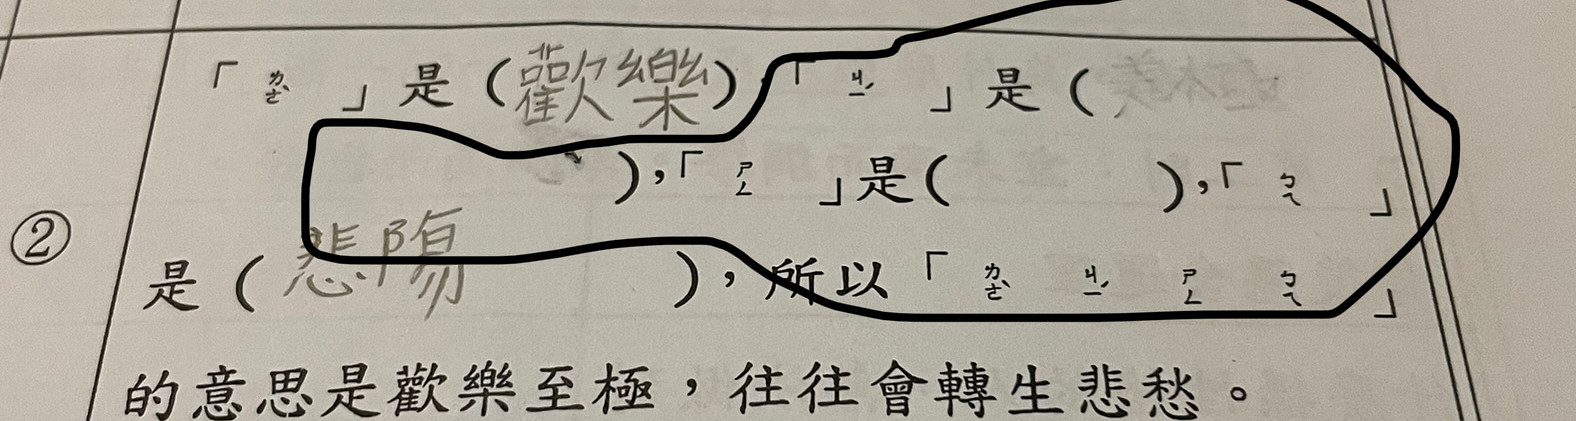 ②
「ㄌㄜˋ」是（歡樂），「ㄐㄧˊ」是（
），「ㄕㄥ」是（　　），「ㄅㄟ」
是（悲陽　　），所以「ㄌㄜˋ ㄐㄧˊ ㄕㄥ ㄅㄟ」
的意思是歡樂至極，往往會轉生悲愁。